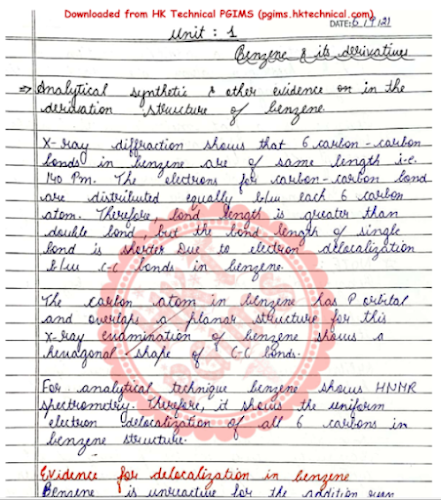 Downloaded from HK Technical PGIMS (pgims.hktechnical.com)
DATE: 6/9/21
Unit : 1
Benzene & its derivatives
⇒ Analytical synthetic & other evidence on in the
derivation structure of benzene.
X-ray diffraction shows that 6 carbon-carbon
bonds in benzene are of same length i.e.
140 Pm. The electrons for carbon-carbon bond
are distributed equally b/w each 6 carbon
atom. Therefore, bond length is greater than
double bond but the bond length of single
bond is shorter Due to electron delocalization
b/w c-c bonds in benzene.
The carbon atom in benzene has P orbital
and overlaps a planar structure for this
X-ray examination of benzene shows a
hexagonal shape of C-C bonds.
For analytical technique benzene shows HNMR
spectrometry. Therefore, it shows the uniform
electron delocalization of all 6 carbons in
benzene structure.
Evidence for delocalization in benzene
Benzene is unreactive for the addition even
HKT
PGIMS